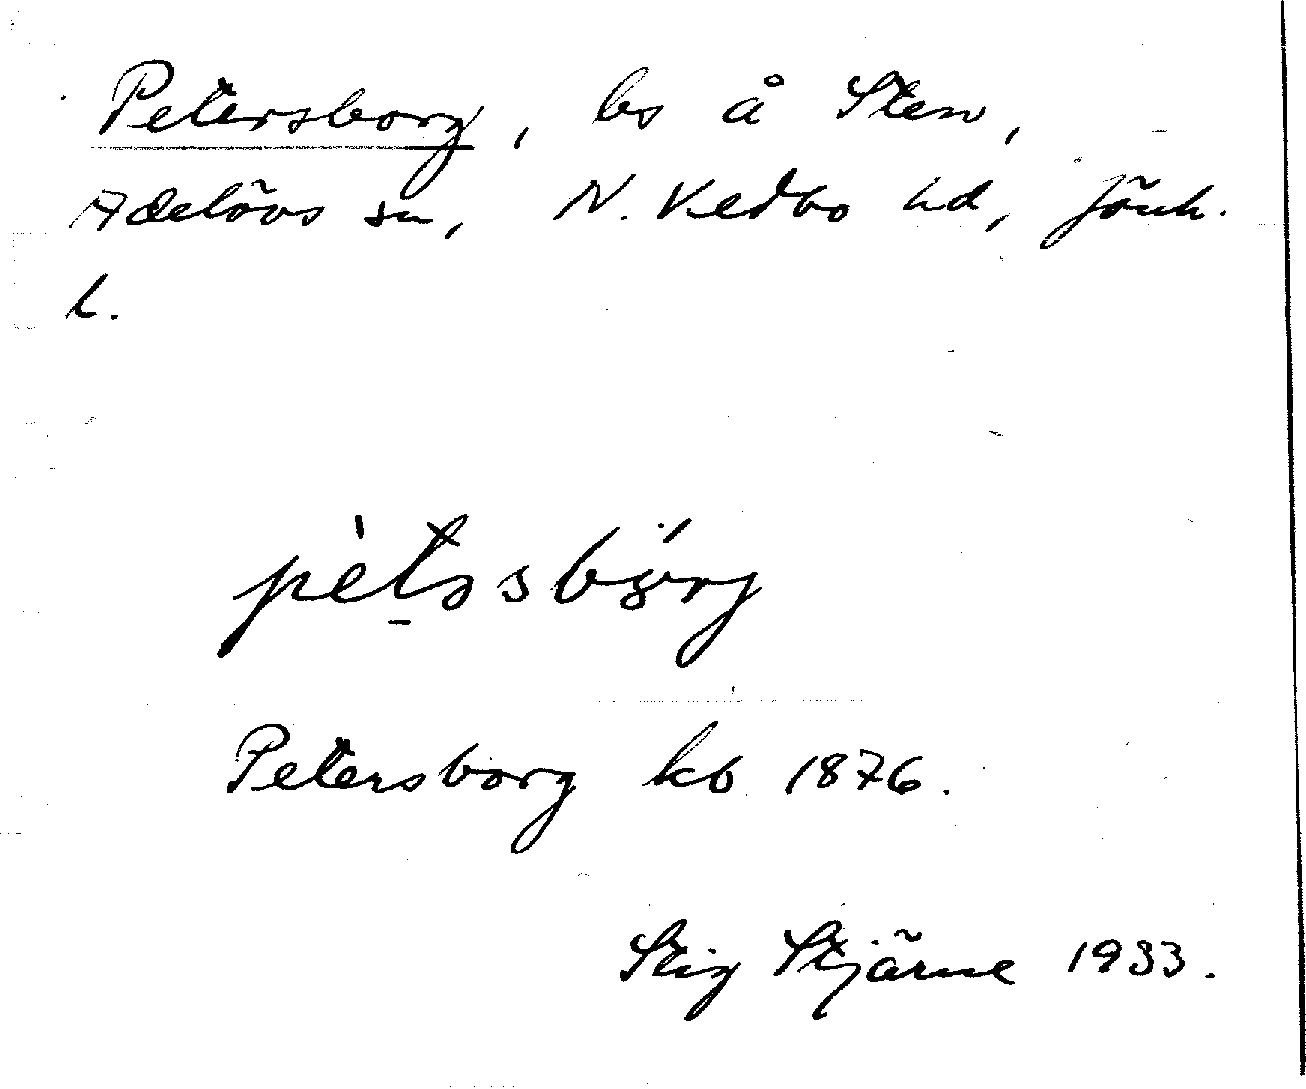 Petersborg, bs å Sten,
Adelövs sn, N. Vedbo hd, Jönk.
l.
Petersborg kb 1876.
Stig Stjärne 1933.